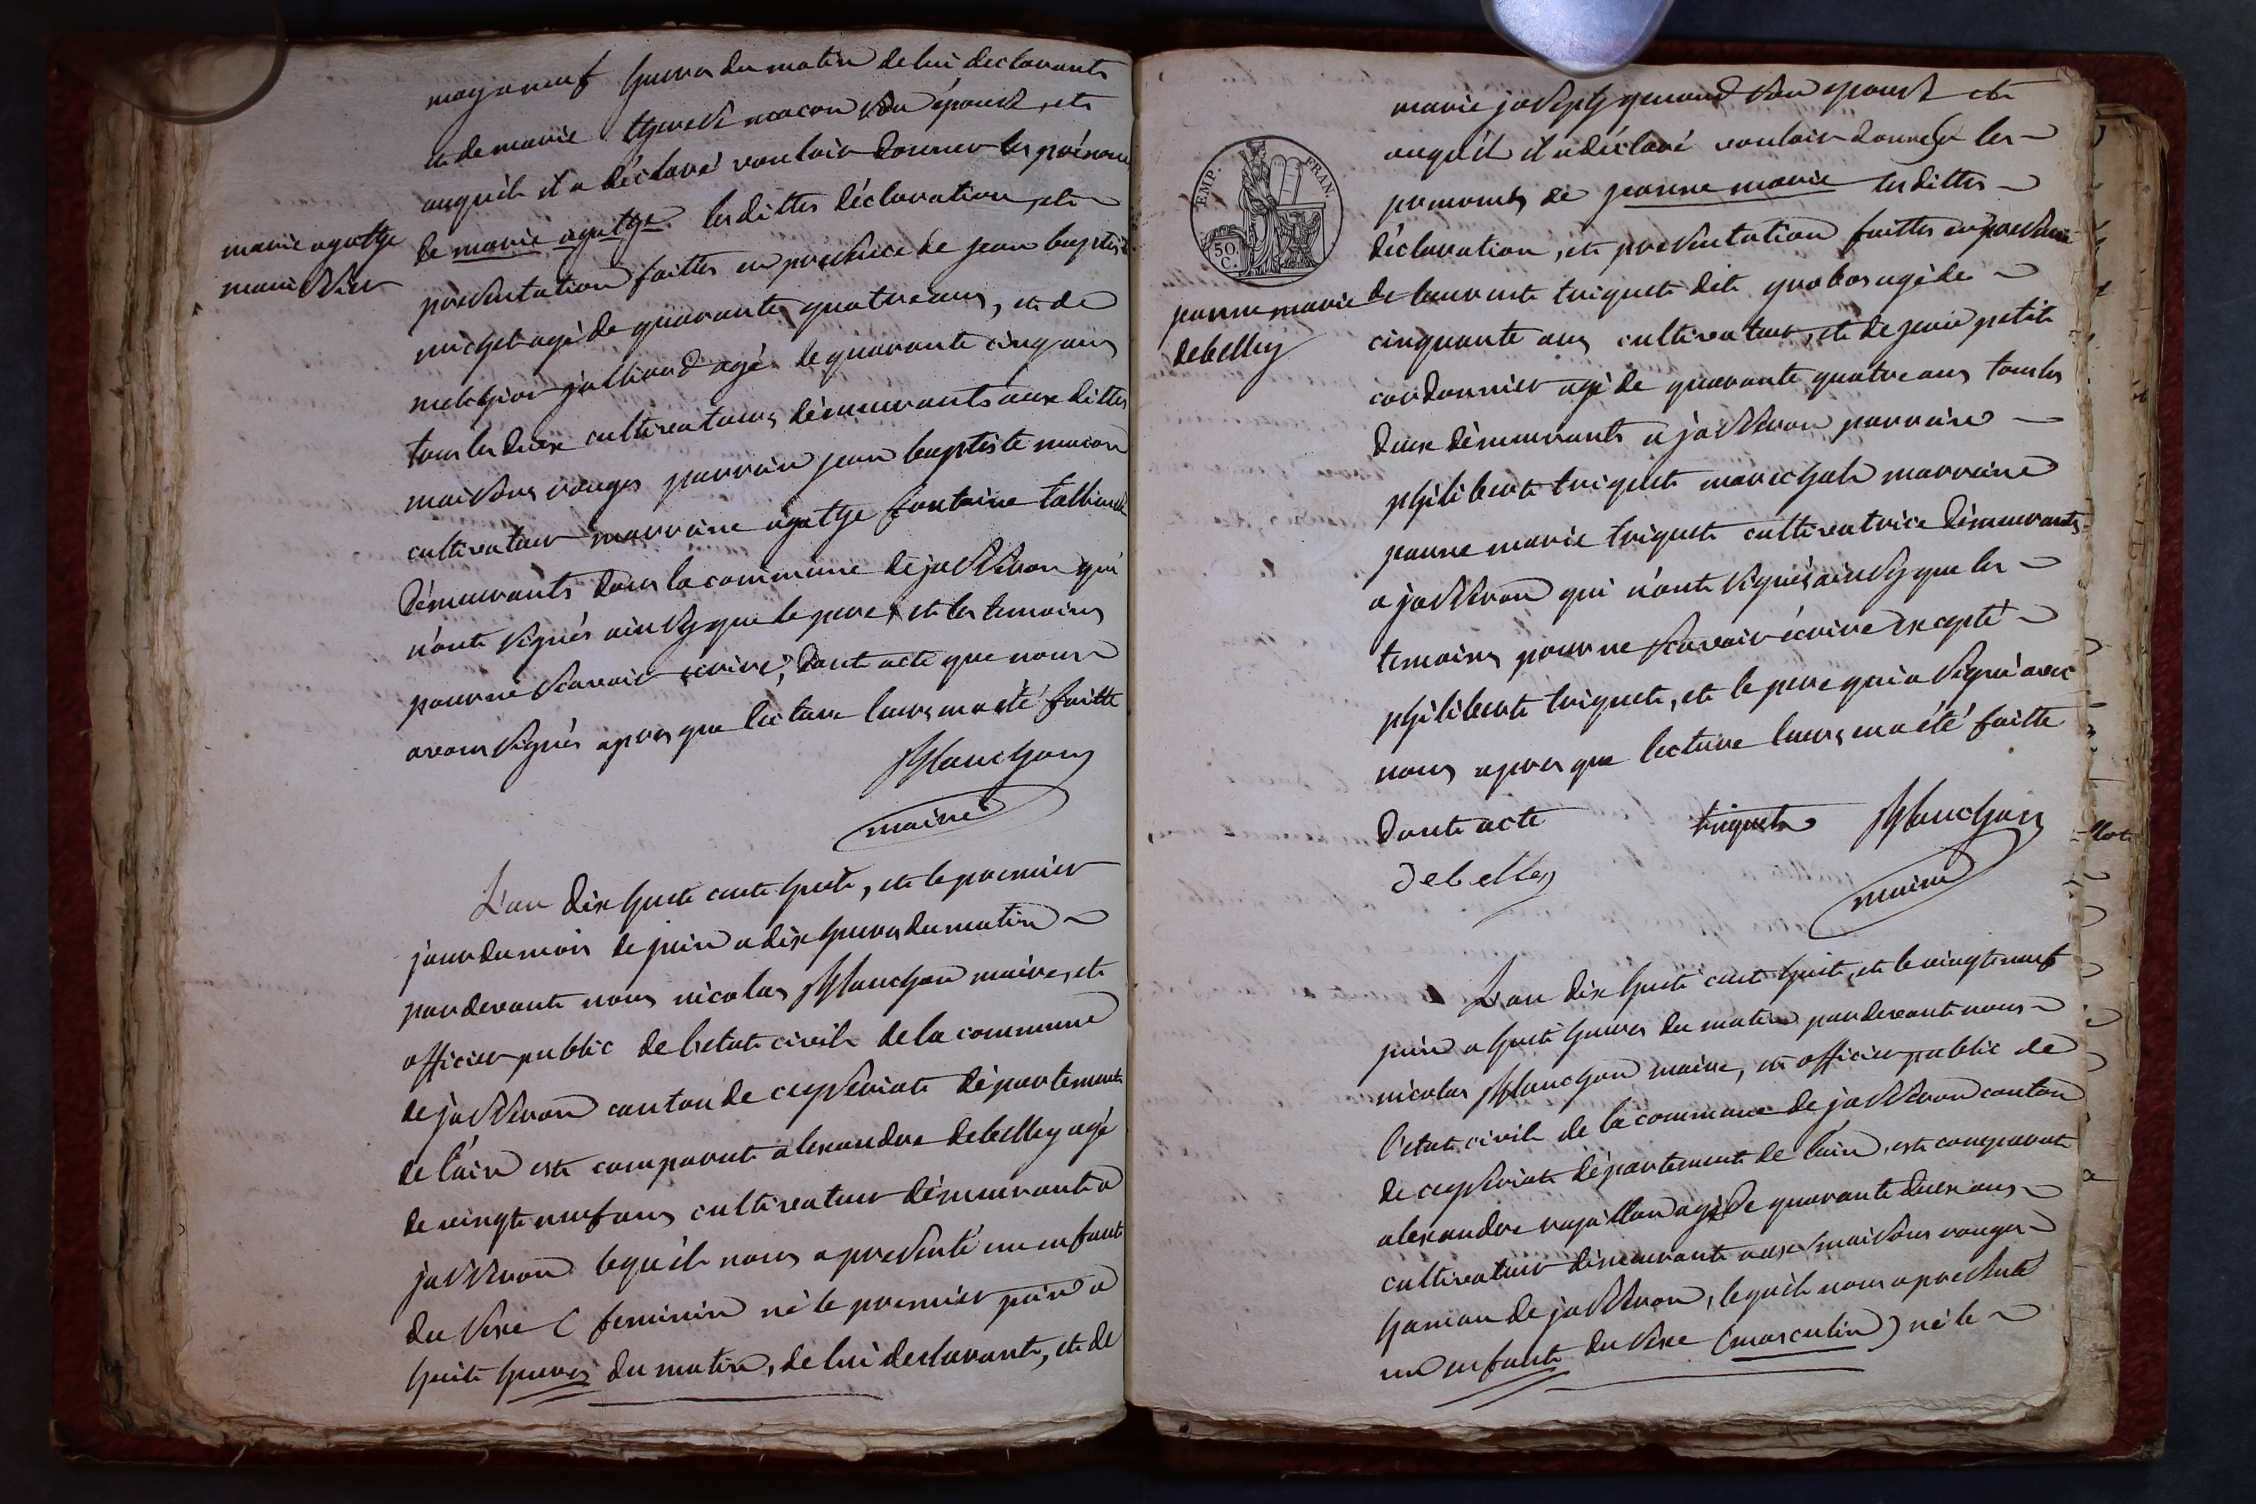 may a neuf heures du matin de lui declarants
et de marie therese macon son épouse, et
auquêls il a déclaré vouloir donner les prénoms
marie agathe
de marie agathe lesdittes déclaration, et
presentation faittes en presence de jean baptiste
michel agé de quarante quatre ans, et de
melchior julliard agé de quarante cinq ans
tous les deux cultivateurs démeurants aux dittes
maisons rouges parrain jean baptiste macon
cultivateur marraine agathe fontaine
démeurants dans la commune de jasseron qui
n'ont signés ainsy que le pere, et les temoins
pour ne scavoir ecrire, dont acte que nous
avons signés apres que lecture leurs en a été faitte
Planchon
maire
L'an dix huit cent huit, et le premier
jour du mois de juin a dix heures du matin
pardevant nous nicolas Planchon maire, et
officier public de l'etat civil de la commune
de jasseron canton de ceyseriat département
de l'ain est comparut alexandre debelley agé
de vingt neuf ans cultivateur démeurant a
jasseron lequêl nous a presenté un enfant
du sexe ( feminin né le premier juin a
huit heures du matin, de lui declarant, et de
EMP. FRAN.
50
C.
marie joseph genoud son epouse et
auquêl il a déclaré vouloir donner les
prenoms de jeanne marie lesdittes
déclaration, et presentation faittes en presence
jeanne marie
debelley
de laurent triquet dit grobas agé de
cinquante ans cultivateur, et de jean petit
cordonnier agé de quarante quatre ans tous les
deux démeurants a jasseron parrain
philibert triquet marechal marraine
jeanne marie triquet cultivatrice démeurants
a jasseron qui n'ont signés ainsy que les
temoins pour ne scavoir écrire excepté
philibert triquet, et le pere qui a signé avec
nous apres que lecture leurs en a été faitte
dont acte triquet Planchon
debelley
maire
L'an dix huit cent huit, et le vingt neuf
juin a huit heures du matin pardevant nous
nicolas Planchon maire, et officier public de
l'etat civil de la commune de jasseron canton
de ceyseriat département de l'ain, est comparut
alexandre rapillon agé de quarante deux ans
cultivateur démeurant aux maisons rouges
hamau de jasseron, lequêl nous a presenté
un enfant du sexe (masculin) né le